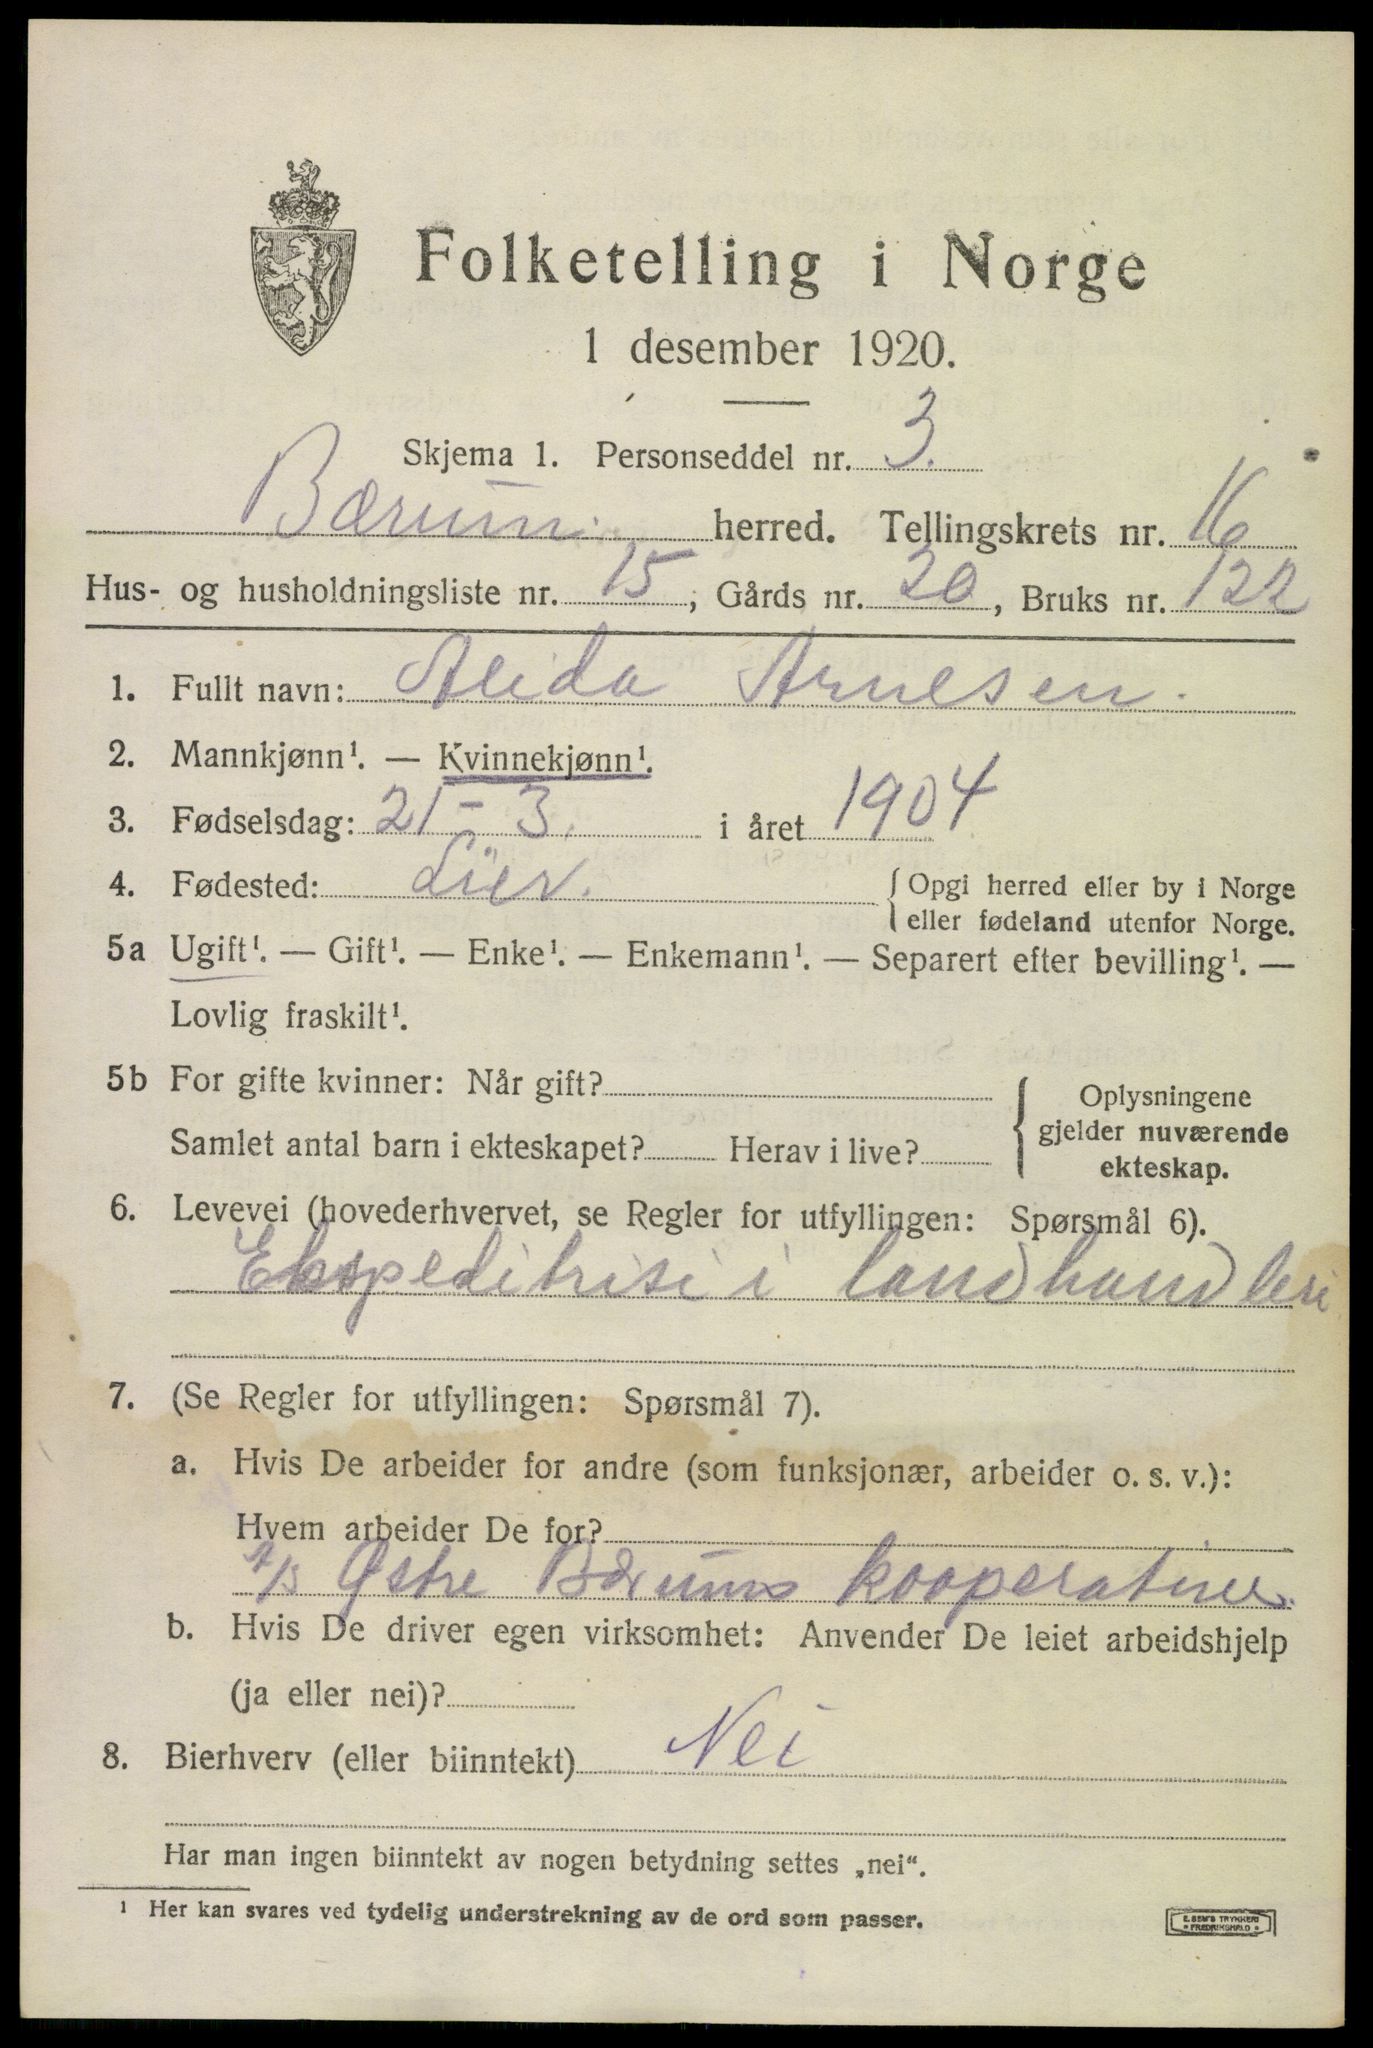 Folketelling i Norge
1 desember 1920.
Skjema 1. Personseddel nr. 3.
Bærum herred. Tellingskrets nr. 16
Hus- og husholdningsliste nr. 15, Gårds nr. 20, Bruks nr. 122
1. Fullt navn: Alida Arnesen.
2. Mannkjønn¹. — Kvinnekjønn¹.
3. Fødselsdag: 21 - 3. i året 1904
4. Fødested: Lier. { Opgi herred eller by i Norge
eller fødeland utenfor Norge.
5a Ugift¹. — Gift¹. — Enke¹. — Enkemann¹. — Separert efter bevilling¹. —
Lovlig fraskilt¹.
5b For gifte kvinner: Når gift? { Oplysningene
gjelder nuværende
ekteskap.
Samlet antal barn i ekteskapet? Herav i live?
6. Levevei (hovederhvervet, se Regler for utfyllingen: Spørsmål 6).
Ekspeditrise i landhandleri
7. (Se Regler for utfyllingen: Spørsmål 7).
a. Hvis De arbeider for andre (som funksjonær, arbeider o. s. v.):
Hvem arbeider De for?
A/S Østre Bærums kooperative.
b. Hvis De driver egen virksomhet: Anvender De leiet arbeidshjelp
(ja eller nei)?
8. Bierhverv (eller biinntekt) Nei
Har man ingen biinntekt av nogen betydning settes „nei“.
¹ Her kan svares ved tydelig understrekning av de ord som passer.
E. SEM'S TRYKKERI
FREDRIKSHALD